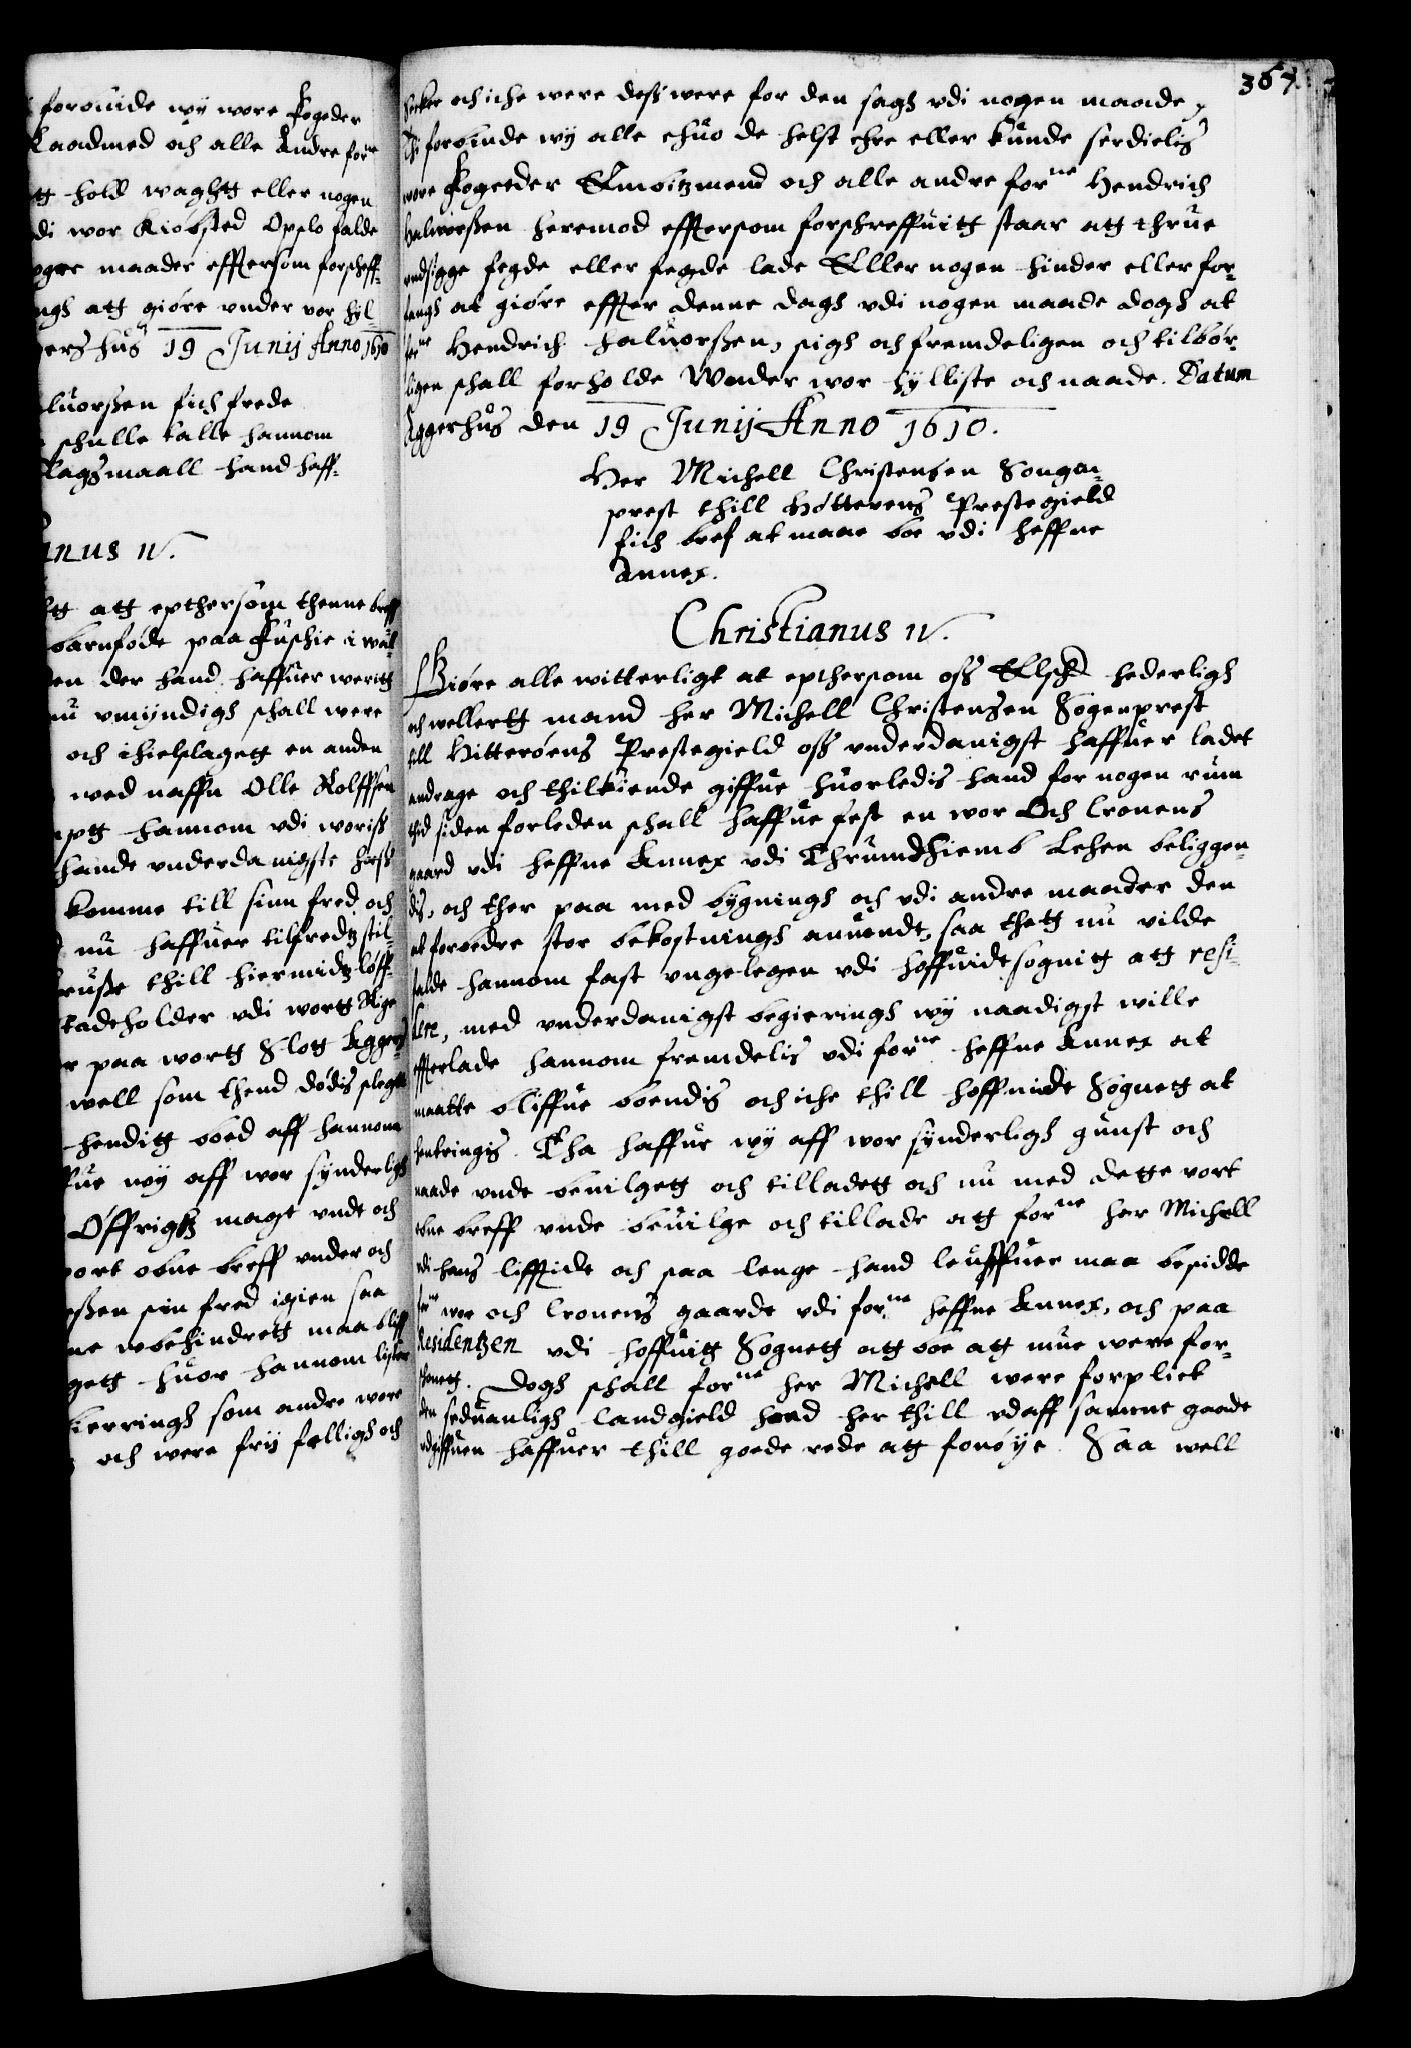 forbinde wy wore Fogeder
Raadmed och alle Andre forne
hold waghtg eller nogen
di wor Kiöbsted Opslo falde
maader efftersom forscheff-
att giöre vnder vor hyl-
hus 19 Junij Anno 1610
luorssen fich frede
schulle talle hannom
klagsmaall hand haff-
anus IV.
att epthersom thenne breff
barnföde paa Fuschie i wal
der hand haffuer weritt
vmyndigh schall were
och ihielslagett en anden
wed naffn Olle Rolffsen
hannom vdi woriss
hande vnderdanigste
komme till sinn fred och
nu haffuer tilfredtz stil-
thill hiermidtz löff-
tadeholder vdi wortt Rige
paa wortt Slott Agger-
well som thend dödis slegtt
henditt boed aff hannom
wy aff wor synderligh
Offrightz magt vndt och
vort obne breff vnder och
sin fred igien saa
wbehindrett maa bliff
huor hannom lyster
kierringh som andre wore
och were frij felligh och
364.
och iche were dess were for den sagh vdi nogen maade
Thi forbinde wy alle ehuo de helst ehre eller kunde serdielis
wore Fogeder Embitzmend och alle andre forne Hendrich
Haluorssen heremod efftersom forschreffuitt staar att thrue
vndsigge fegde eller fegde lade Eller nogen hinder eller for-
fangh at giöre effter denne dagh vdi nogen maade dogh at
forne Hendrich Haluorssen, sigh och fremdeligen och tilbör-
ligen schall forholde Wnder wor hylliste och naade. Datum
Aggerhus den 19 Junij Anno 1610.
Her Michell Christensen Songen-
prest thill Hötterens Prestegield
fich bref at maae boe vdi Heffne
Annex.
Christianus IV.
Giöre alle witterligt at epthersom oss Elsch hederligh
och wellertt mand her Michell Christensen Sogenprest
till Hitteröens Prestegield oss vnderdanigst haffuer ladet
andrage och thilkiende giffue huorledis hand for nogen rum
thid siden forleden schall haffue fest en wor Och Cronens
gaard vdi Heffne Annex vdi Thrumdhiemb Lehen beliggen-
dis, och ther paa med bygningh och vdi andre maader den
at forbedre stor bekostningh anuendt, saa thett nu vilde
falde hannom fast vngelegen vdi hoffuidtsognitt att resi-
dere, med vnderdanigst begieringh wy naadigst wille
effterlade hannom fremdelis vdi forne Heffne Annex at
maatte bliffue boendis och iche thill hoffuidt Sognett at
hentringis. Tha haffue wy aff wor synderligh gunst och
naade vnde beuilgett och tilladett och nu med dette vort
obne breff vnde beuilge och tillade att forne her Michell
vdi hans lifftide och saa lenge hand leuffuer maa besidde
forne wor och Cronens gaarde vdi forne Heffne Annex, och paa
Residentzen vdi hoffuitt Sognett att boe att mue were for-
schonett. Dogh schall forne her Michell were forplict
den seduanligh landgield hand her thill vdaff samme gaarde
vdgiffuen haffuer thill goede rede att fornöye. Saa well